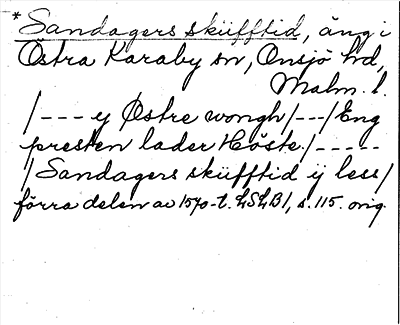 *Sandagers sküfftid, äng i
Östra Karaby sn, Onsjö hd,
Malm. l.
/--- ey Østre wongh/---/Eng
presten lader Høste/-----
/Sandagers sküfftid ÿ less/
förra delen av 1570-t. LSLB1, s. 115. orig.